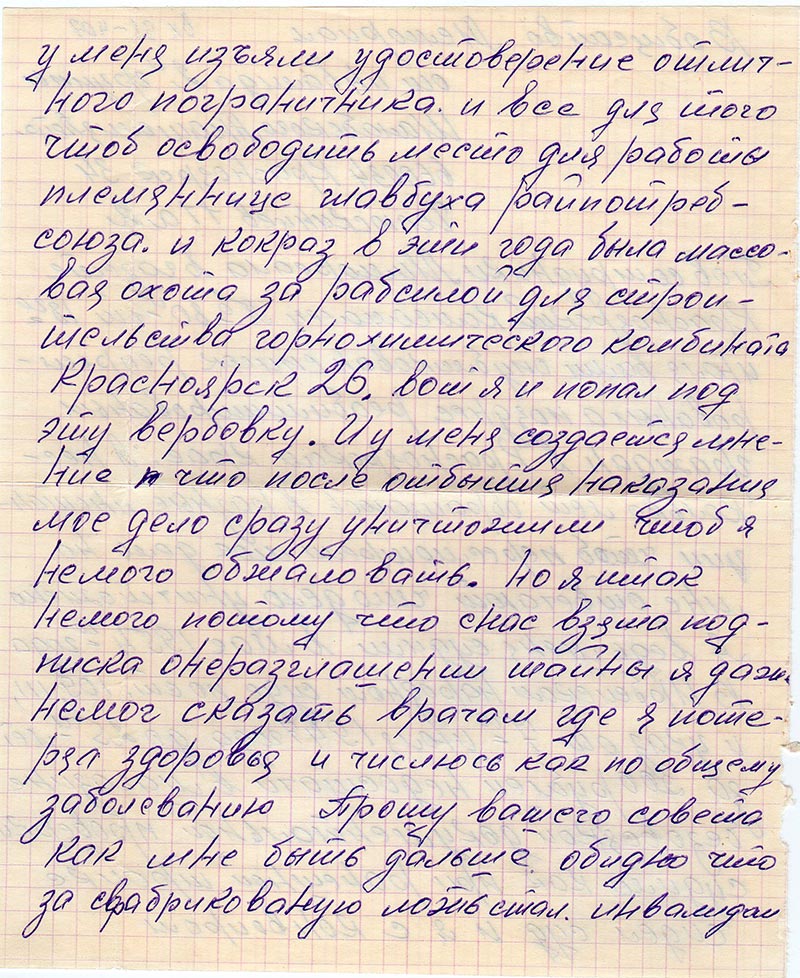 у меня изъяли удостоверение отлич-
ного пограничника. и все для того
чтоб освободить место для работы
племяннице главбуха райпотреб-
союза. и кокраз в эти года была массо-
вая охота за рабсилой для строи-
тельства горнохимического комбината
Красноярск 26. вот я и попал под
эту вербовку. И у меня создается мне-
ние что после отбытия наказания
мое дело сразу уничтожили чтоб я
немого обжаловать. но я итак
немого потому что снас взята под-
писка онеразглашении тайны я даже
немог сказать врачам где я поте-
рял здоровья и числюсь как по общему
заболеванию Прошу вашего совета
как мне быть дальше обидно что
за сфабрикованую ложь стал. инвалидом